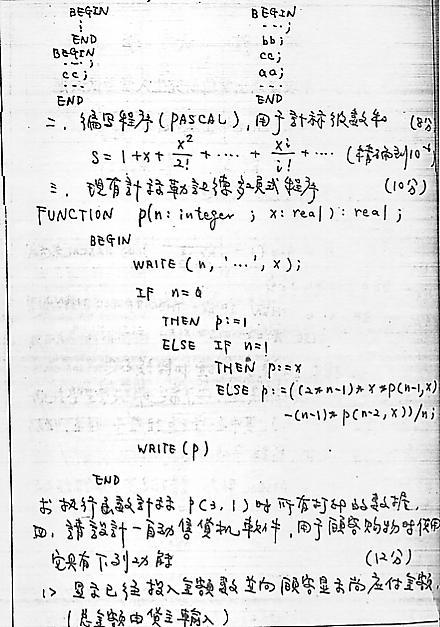 BEGIN
;
END
BEGIN
---;
cc;
---
END
BEGIN
---;
bb;
cc;
aa;
---
END
二、编写程序(PASCAL),用于計祘级数和 (8分)
S = 1 + x + x²/2! + ---- + xi/i! + ---- (精确到10⁻⁶)
三、现有計祘勒让德多项式程序 (10分)
FUNCTION p(n: integer ; x: real): real ;
BEGIN
WRITE (n, '...', x);
IF n=0
THEN p:=1
ELSE IF n=1
THEN p:=x
ELSE p:=((2*n-1)*x*p(n-1,x)
-(n-1)*p(n-2,x))/n;
WRITE(p)
END
求执行函数計祘 p(3,1)时所有打印的数据.
四、請設計一自动售货机軟件,用于顾客购物时使用
它具有下列功能 (12分)
1> 显示已经投入金额数並向顾客显示尚应付金额,
(总金额由货主輸入)